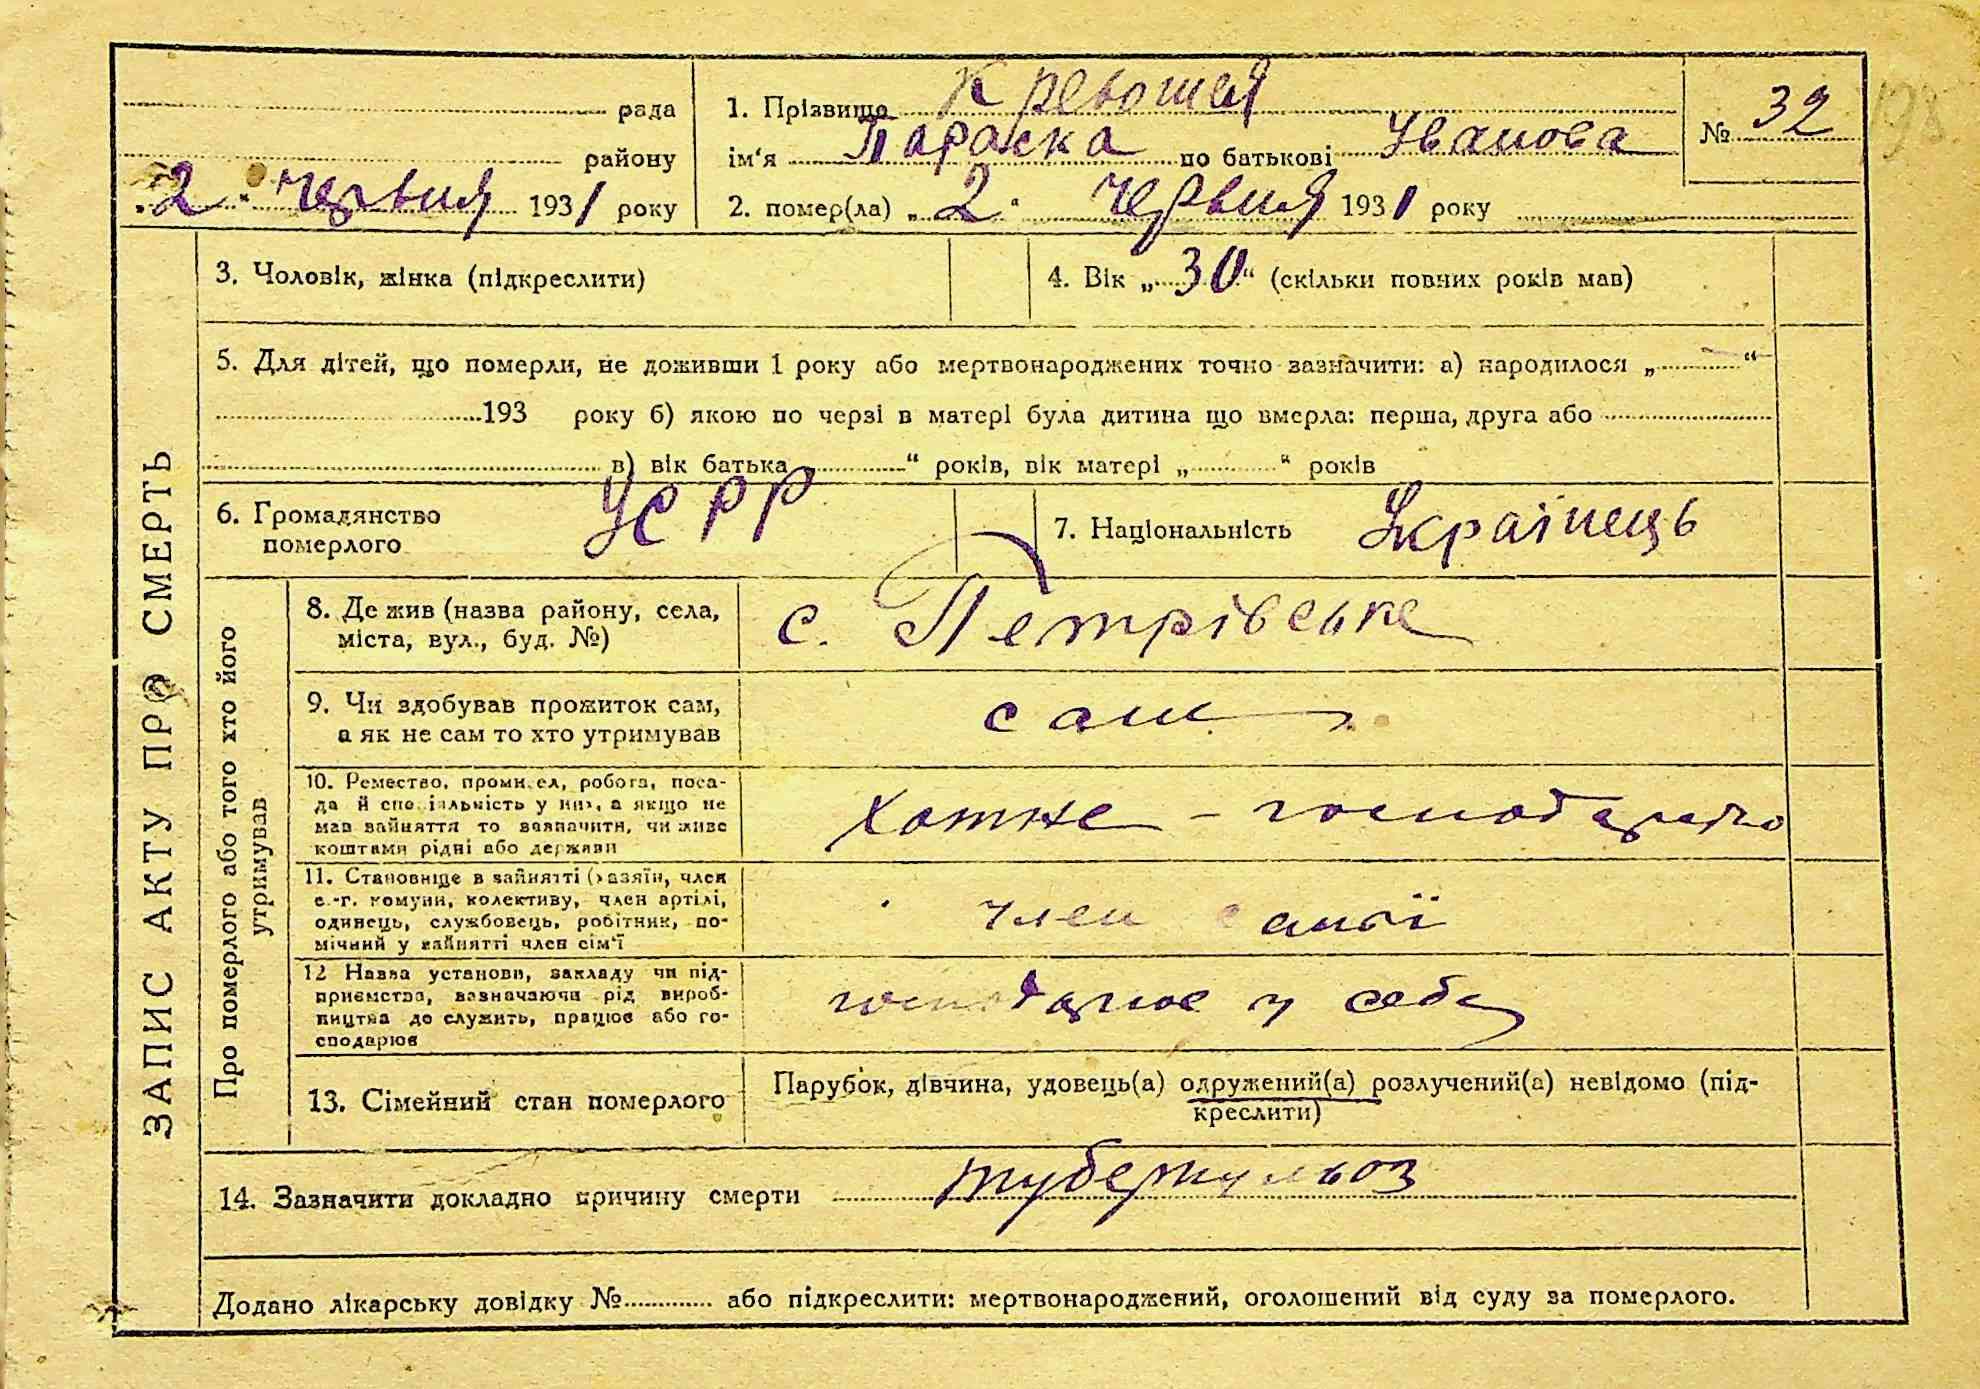 рада
району
„2“ червня 1931 року
1. Прізвище Кревошея
ім'я Параска по батькові Іванова
2. помер(ла) „2“ червня 1931 року
№ 32
198
ЗАПИС АКТУ ПРО СМЕРТЬ
3. Чоловік, жінка (підкреслити)
4. Вік „30“ (скільки повних років мав)
5. Для дітей, що померли, не доживши 1 року або мертвонароджених точно зазначити: а) народилося „ “
193 року б) якою по черзі в матері була дитина що вмерла: перша, друга або
в) вік батька „ “ років, вік матері „ “ років
6. Громадянство
померлого
УСРР
7. Національність Українець
Про померлого або того хто його
утримував
8. Де жив (назва району, села,
міста, вул., буд. №)
с. Петрівське
9. Чи здобував прожиток сам,
а як не сам то хто утримував
сам
10. Ремество, промисел, робота, поса-
да й спеціяльність у них, а якщо не
мав зайняття то зазначити, чи живе
коштами рідні або держави
хатне - господарство
11. Становище в зайнятті (хазяїн, член
с.-г. комуни, колективу, член артілі,
одинець, службовець, робітник, по-
мічний у зайнятті член сім'ї
член сам'ї
12 Назва установи, закладу чи під-
приємства, зазначаючи рід вироб-
ництва до служить, працює або го-
сподарює
господарює у себе
13. Сімейний стан померлого
Парубок, дівчина, удовець(а) одружений(а) розлучений(а) невідомо (під-
креслити)
14. Зазначити докладно причину смерти туберкульоз
Додано лікарську довідку № або підкреслити: мертвонароджений, оголошений від суду за померлого.